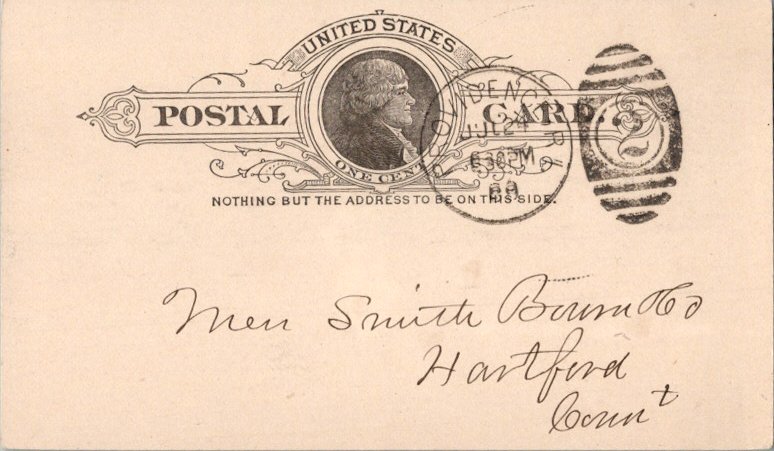 UNITED STATES
POSTAL CARD.
ONE CENT
NOTHING BUT THE ADDRESS TO BE ON THIS SIDE.
PROVIDENCE R.I.
JUL 24
630PM
89
2
Smith Bourn & Co
Hartford
Connt